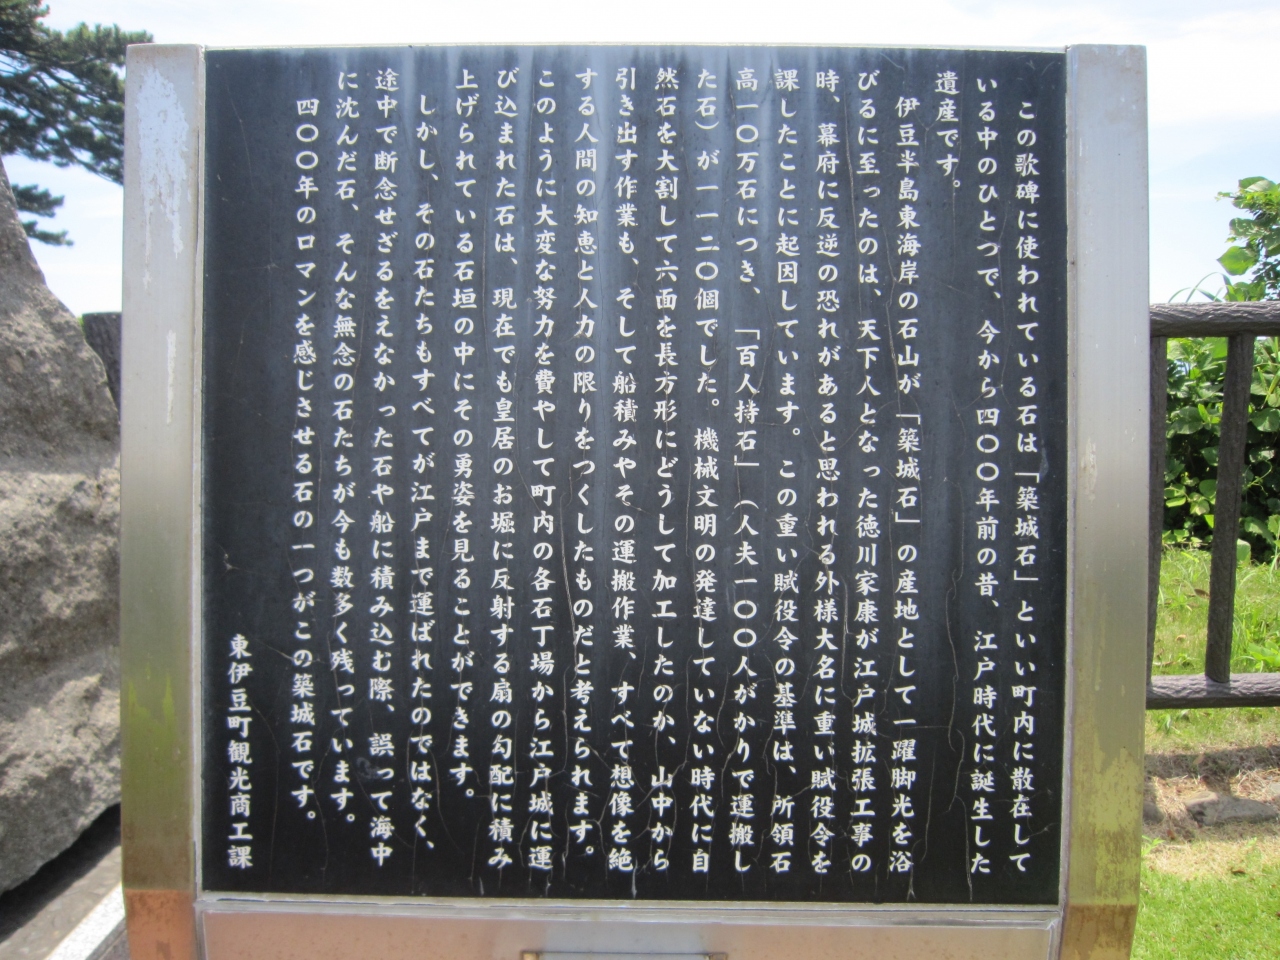 この歌碑に使われている石は「築城石」といい町内に散在して
いる中のひとつで、今から四〇〇年前の昔、江戸時代に誕生した
遺産です。
伊豆半島東海岸の石山が「築城石」の産地として一躍脚光を浴
びるに至ったのは、天下人となった徳川家康が江戸城拡張工事の
時、幕府に反逆の恐れがあると思われる外様大名に重い賦役令を
課したことに起因しています。この重い賦役令の基準は、所領石
高一〇万石につき、「百人持石」(人夫一〇〇人がかりで運搬し
た石)が一一二〇個でした。機械文明の発達していない時代に自
然石を大割して六面を長方形にどうして加工したのか、山中から
引き出す作業も、そして船積みやその運搬作業、すべて想像を絶
する人間の知恵と人力の限りをつくしたものだと考えられます。
このように大変な努力を費やして町内の各石丁場から江戸城に運
び込まれた石は、現在でも皇居のお堀に反射する扇の勾配に積み
上げられている石垣の中にその勇姿を見ることができます。
しかし、その石たちもすべてが江戸まで運ばれたのではなく、
途中で断念せざるをえなかった石や船に積み込む際、誤って海中
に沈んだ石、そんな無念の石たちが今も数多く残っています。
四〇〇年のロマンを感じさせる石の一つがこの築城石です。
東伊豆町観光商工課